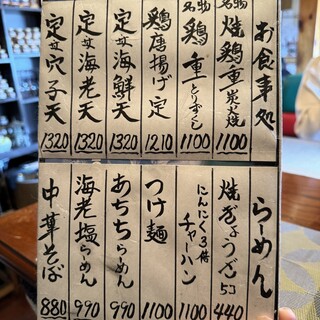 お食事処
名物
焼鶏重 炭火焼
1100
名物
鶏重 とりずくし
1100
鶏唐揚げ定
1210
定食 海鮮天
1320
定食 海老天
1320
定食 穴子天
1320
らーめん
焼ぎょうざ 5コ
440
にんにく3倍
チャーハン
1100
つけ麺
1100
あちちらーめん
990
海老塩らーめん
990
中華そば
880